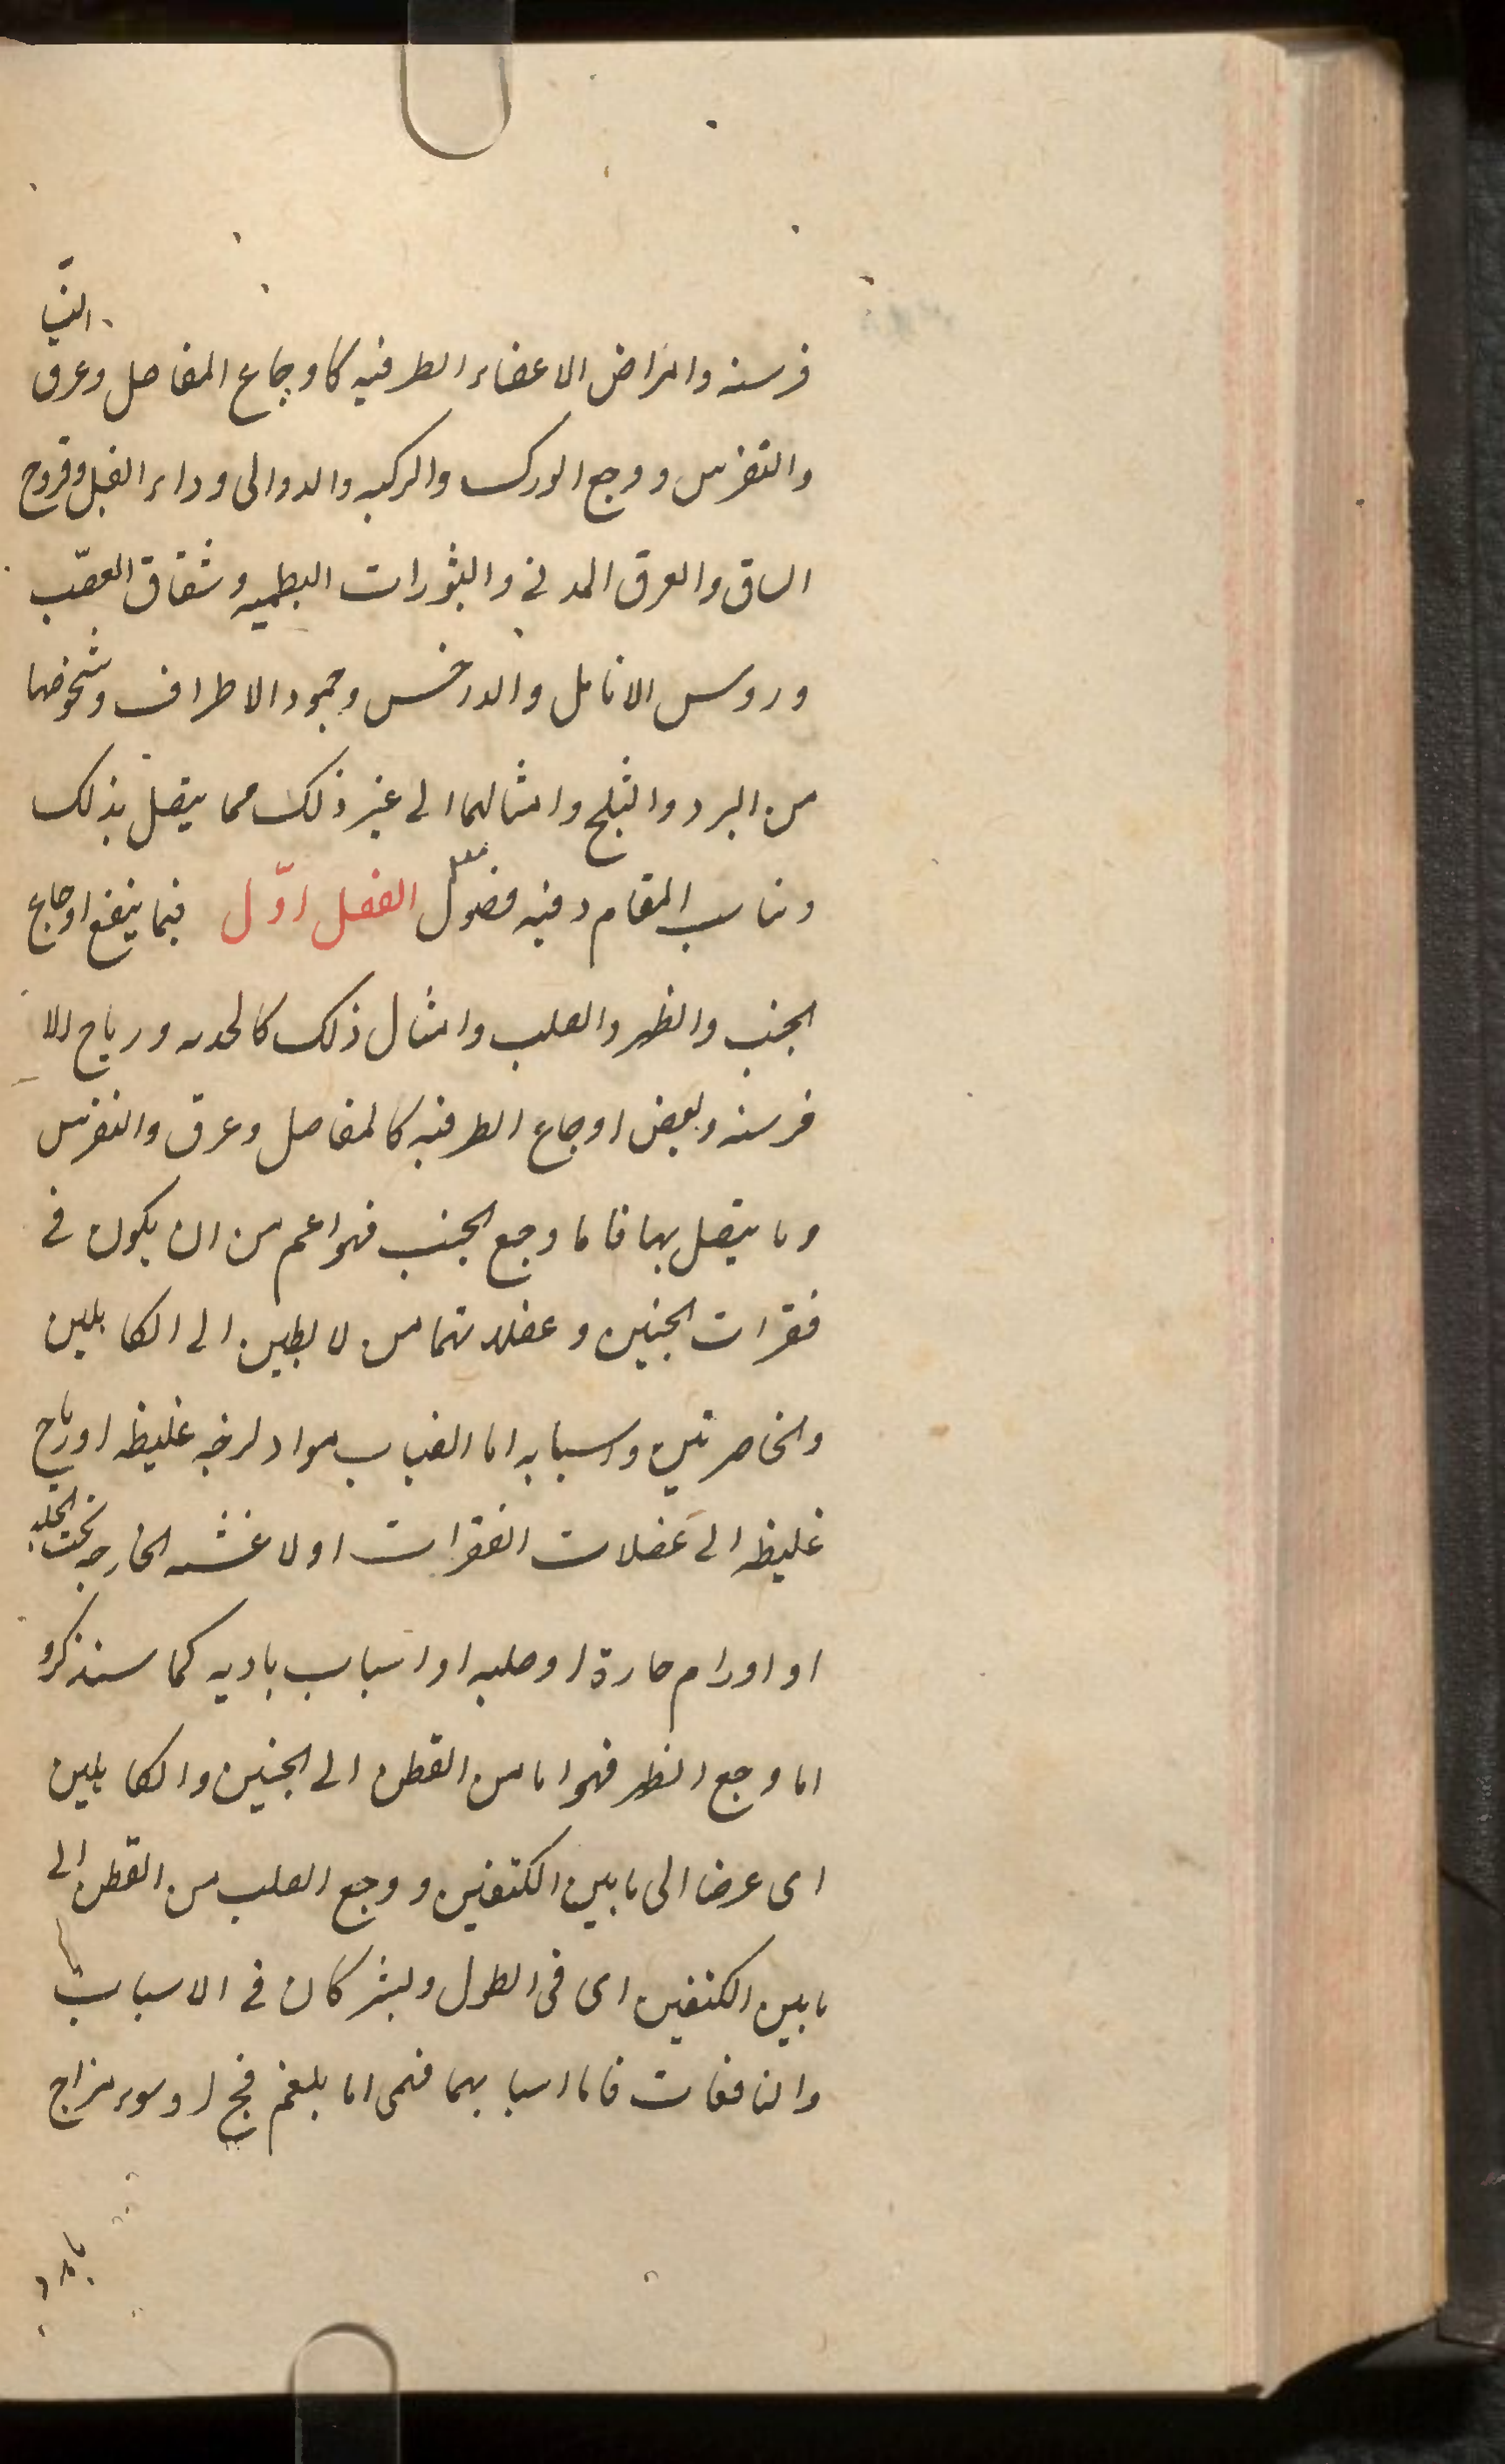 النسا
فرسنه وامراض الاعضاء الطرفيه كاوجاع المفاصل وعرق
والنقرس ووجع الورك والركبه والدوالى وداء الفيل وقروح
الساق والعرق المدنى والبثورات البطميه وشقاق العقب
وروس الانامل والدخس وجمود الاطراف وشخوضها
من البرد والثلج وامثالهما الى غير ذلك مما يتصل بذلك
وتناسب المقام وفيه فصول الفصل اوّل فيما ينفع اوجاع
الجنب والظهر والصلب وامثال ذلك كالحدبه ورياح الا
فرسنه وبعض اوجاع الطرفيه كالمفاصل وعرق والنقرس
وما يتصل بها فاما وجع الجنب فهو اعم من ان يكون فى
فقرات الجنبين وعضلاتهما من لابطين الى الكاهلين
والخاصرتين واسبابه اما انصباب مواد لزجه غليظه او رياح
غليظه الى عضلات الفقرات اولا غشيه الخارجه تحت الجلد
او اورام حارة او صلبه او اسباب باديه كما سنذكره
اما وجع الظهر فهو اما من القطن الى الجنبين والكاهلين
اى عرضا الى مابين الكتفين ووجع الصلب من القطن الى
مابين الكتفين اى فى الطول ويشتركان فى الاسباب
والنافعات فاما اسبابهما فهى اما بلغم فج او سوء مزاج
بارد